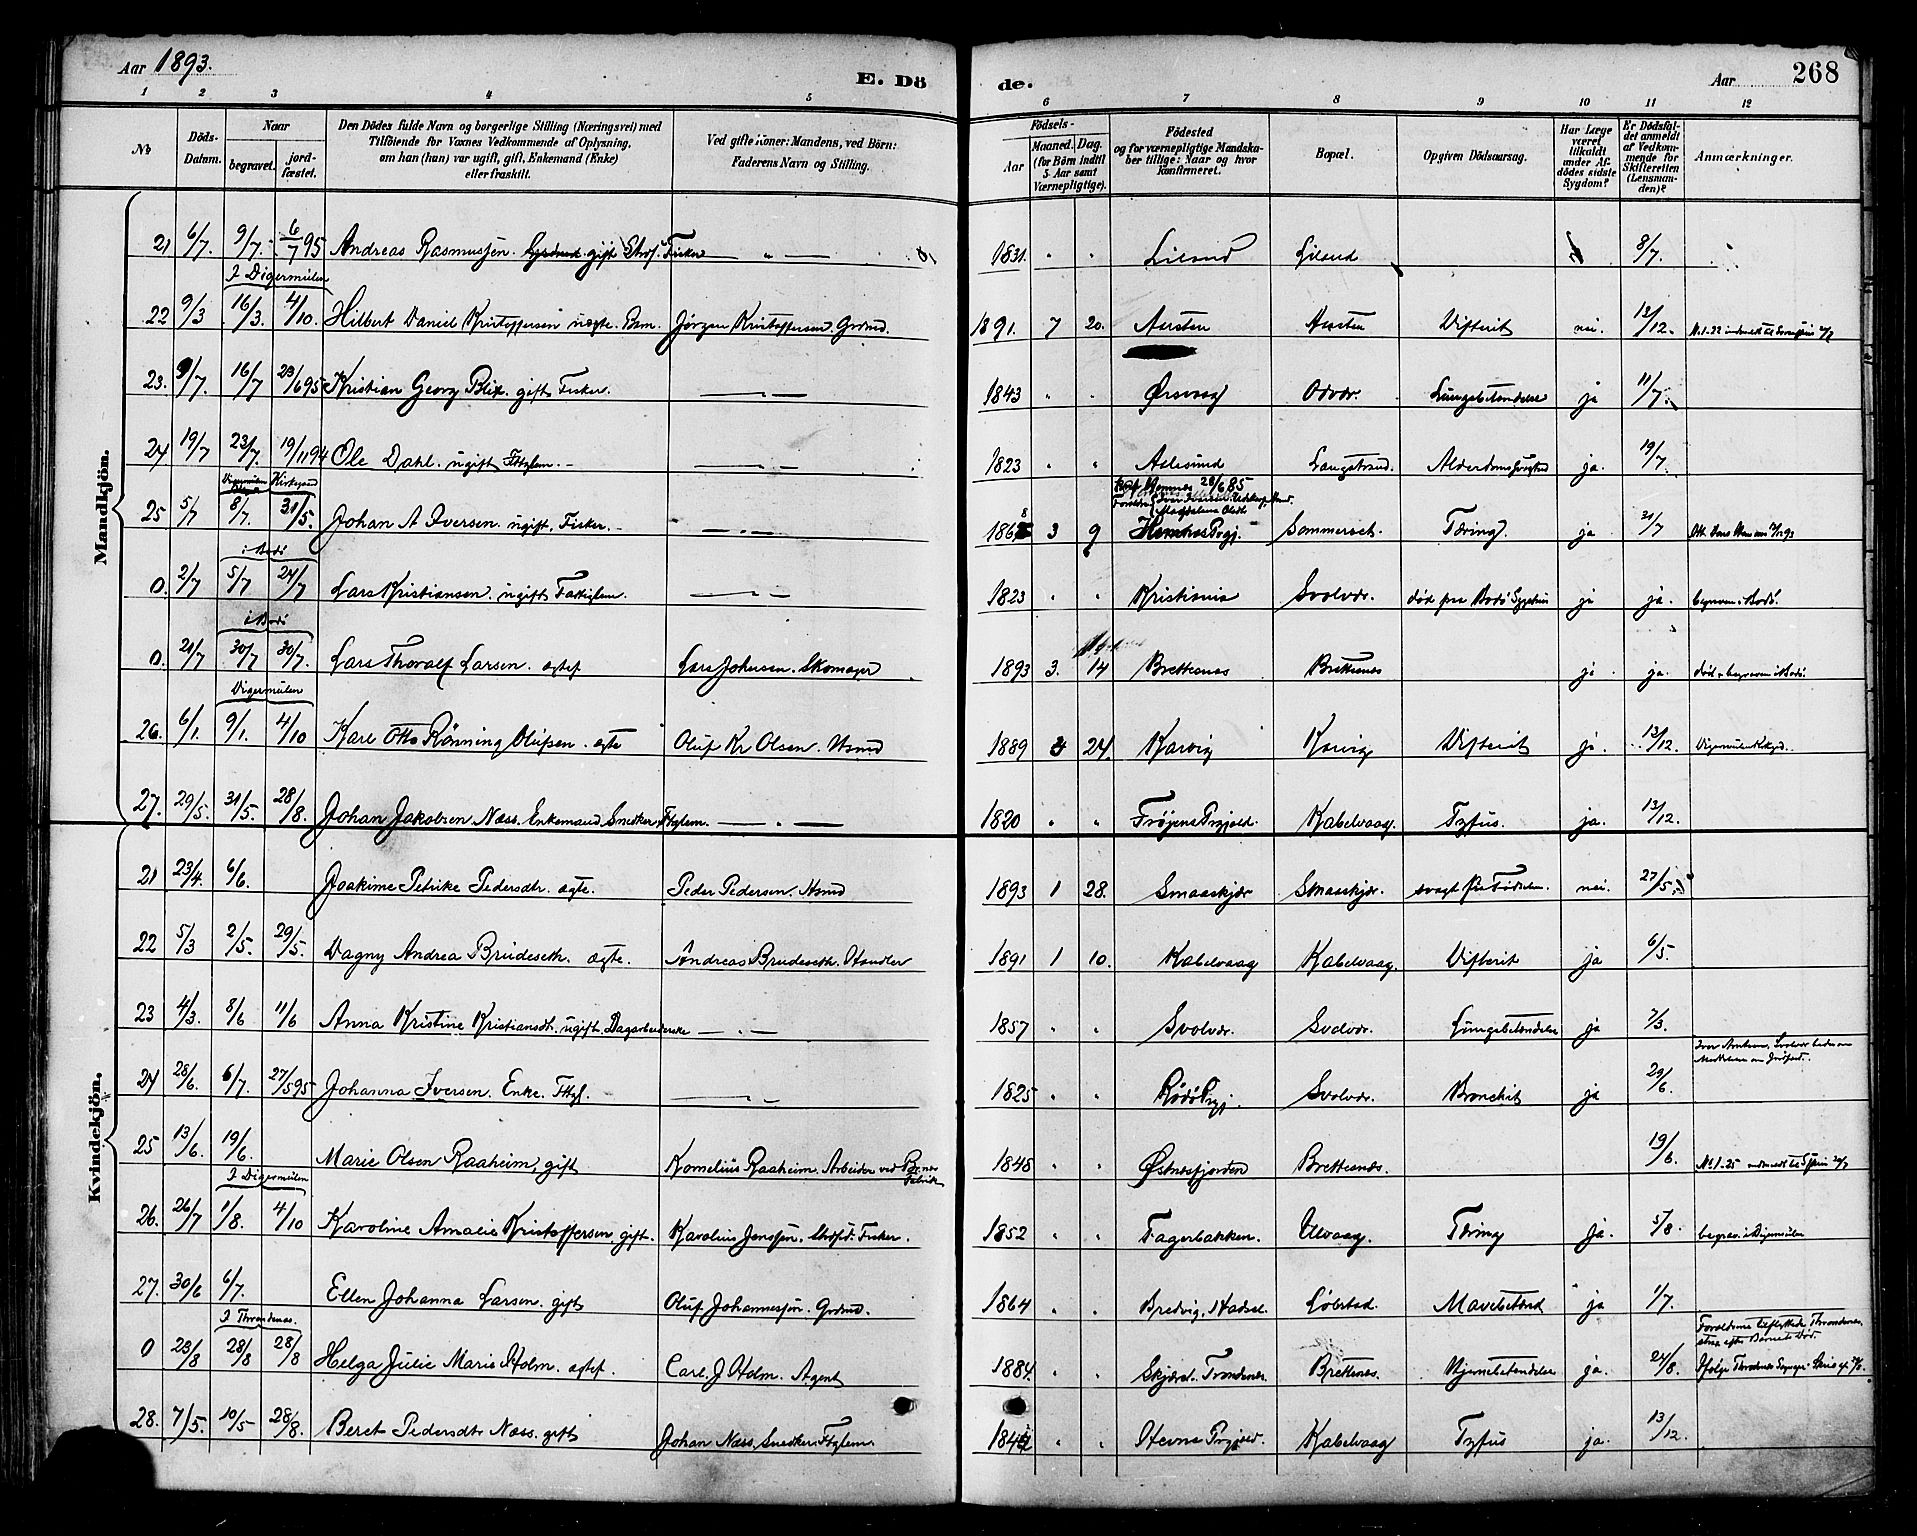 Aar 1893.
E. Dö
de.
Aar
268
1 2 3 4 5 6 7 8 9 10 11 12
No
Döds-Datum.
Naar
begravet.
jord-fæstet.
Den Dödes fulde Navn og borgerlige Stilling (Næringsvei) med
Tilföiende for Voxnes Vedkommende af Oplysning,
om han (hun) var ugift, gift, Enkemand (Enke)
eller fraskilt.
Ved gifte Koner: Mandens, ved Börn:
Faderens Navn og Stilling.
Födsels-
Aar
Maaned. Dag.
(for Börn indtil
5 Aar samt
Værnepligtige).
Födested
og for værnepligtige Mandska-
ber tillige: Naar og hvor
konfirmeret.
Bopæl.
Opgiven Dödsaarsag.
Har Læge
været
tilkaldt
under Af-
dödes sidste
Sygdom?
Er Dödsfal-
det anmeldt
af Vedkom-
mende for
Skifteretten
(Lensman-
den)?
Anmærkninger.
Mandkjön.
21 6/7. 9/7. 6/7 95 Andreas Rasmussen. gift Fisker 1831. " " Lilund 8/7.
I Digermulen
22 9/3 16/3. 4/10. Hilbert Daniel Kristoffersen uægte. Bsm. Jörgen Kristoffersen. Grdmd. 1891. 7 20. Austen Austen Difterit nei. 13/12.
23. 9/7. 16/7 23/6 95 Kristian Georg Blix. gift Fisker. 1843 " " Ørsvaag Odvær. Lungebetændelse ja 11/7.
24 19/7 23/7. 19/11 94 Ole Dahl. ugift Fttglem. 1823 " " Aalesund Langstrand. Alderdomssvaghed ja. 19/7.
Digermulen Kirkegaard
Konf. Hemnes 28/6 85
25 5/7 8/7. 31/5. Johan A Iversen. ugift, Fisker. 1868 3 9 Hemnes Prgj. Sommerset. Tæring. ja 31/7
i Bodö
0. 2/7 5/7 24/7 Lars Kristiansen. ugift Fattiglem. 1823 " " Kristiania Svolvær. död paa Bodö Sygehus ja ja. begraven i Bodö.
i Bodö
0. 21/7 30/7 30/7. Lars Thoralf Larsen. ægtef Lars Johnsen. Skomager 1893 3. 14 Brettesnæs Brettesnæs ja. ja. död & begraven i Bodö.
Digermulen
26. 6/1. 9/1. 4/10 Karl Otto Rönning Olufsen. ægte Oluf Kr Olsen. Husmd 1889 24. Karvig Karvig Difterit ja. 13/12. Digermulen Kirkegd.
27. 29/5. 31/5. 28/8. Johan Jakobsen Næss. Enkemand. Snedker, Fttglem. 1820 " " Fröjens Prgjeld. Kabelvaag. Tyfus. ja. 13/12.
Kvindekjön.
21 23/4. 6/6. Joakime Petrike Pedersdtr. ægte. Peder Pedersen. Husmd 1893 1 28. Smaaskjær Smaaskjær. svagt fra Födselen. nei. 27/5.
22 5/3 2/5. 29/5. Dagny Andrea Brudeseth. ægte. Andreas Brudeseth. Handler 1891 1 10. Kabelvaag Kabelvaag. Difterit ja 6/5.
23 4/3. 8/6 11/6 Anna Kristine Kristiansdt. ugift. Dagarbeiderske 1857 " " Svolvær. Svolvær. Lungebetændelse ja 7/3.
24 28/6. 6/7. 27/5 95 Johanna Iversen. Enke. Fttgl. 1825 " " Rödö Prgj. Svolvær. Bronchit ja 29/6.
25 13/6. 19/6. Marie Olsen Raaheim, gift Kornelius Raaheim. Arbeider ved Brnæs Fabrik 1848 " " Østnæsfjorden Brettesnæs. 19/6.
I Digermulen
26. 26/7 1/8. 4/10 Karoline Amalie Kristoffersen, gift. Karolius Jenssen. Fisker. 1852 " " Fagerbakken. Ulvaag. Tæring ja. 5/8. begrav. i Digermulen
27. 30/6 6/7. Ellen Johanna Larsen. gift Oluf Johannessen. Grdmd. 1864 " " Bredvig. Hadsel. Löbstad. Mavebetænd ja 1/7.
I Throndenæs.
0 23/8 28/8 28/8 Helga Julie Marie Holm. ægtef. Carl. J Holm. Agent 1884. " " Trondenæs Brettesnæs. Hjernebetændelse ja. 24/8.
28. 7/5. 10/5 28/8. Beret Pedersdtr Næss. gift Johan Næss. Snedker. Fttglem. 184 " " Hevne Prgjeld. Kabelvaag Tyfus ja. 13/12.